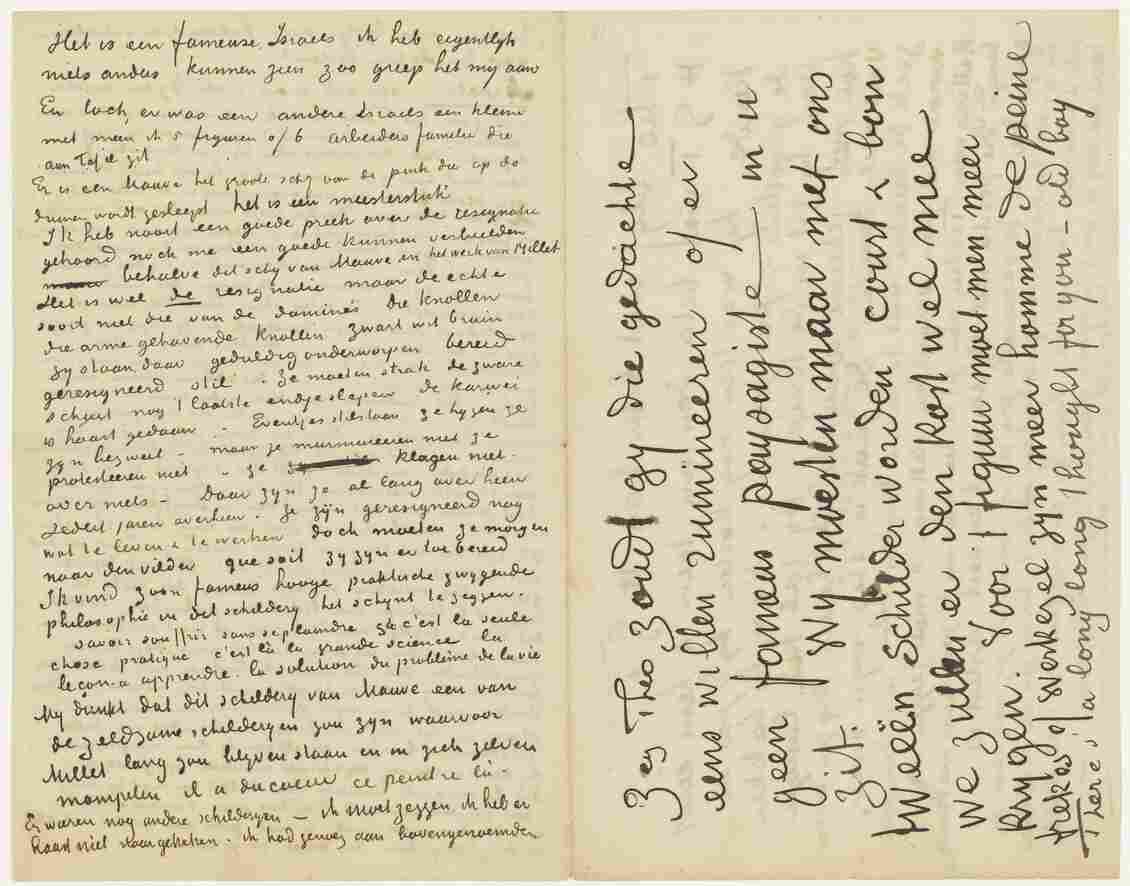 Het is een fameuse Israels ik heb eigentlyk
niets anders kunnen zien zoo greep het my aan
En toch, er was een andere Israels een kleine
met meen ik 5 figuren of 6 arbeiders familie die
aan Tafel zit
Er is een Mauve het groote schij van de pink die op de
duinen wordt gesleept het is een meesterstuk
Ik heb nooit een goede preek over de resignatie
gehoord noch me een goede kunnen verbeelden
behalve dit schij van Mauve en het werk van Millet
Het is wel de resignatie maar de echte
soort niet die van de dominés die knollen
die arme gehavende knollen zwart wit bruin
zy staan daar geduldig onderworpen bereid
geresigneerd stil. ze moeten strak de zware
schuit nog 't laatste endje slepen de karwei
is haast gedaan. Eventjes stilstaan ze hygen ze
zyn bezweet – maar ze murmureeren niet ze
protesteeren niet – ze klagen niet
over niets – Daar zyn ze al lang over heen
sedert jaren overheen. Ze zijn geresigneerd nog
wat te leven & te werken doch moeten ze morgen
naar den vilder que soit zy zyn er toe bereid
Ik vind zoon fameus hooge praktische zwygende
philosophie in dit schildery het schynt te zeggen.
savoir souffrir sans se plaindre ça c'est la seule
chose pratique c'est là la grande science la
leçon à apprendre. la solution du problème de la vie
My dunkt dat dit schildery van Mauve een van
de zeldzame schilderyen zou zyn waarvoor
Millet lang zou blyven staan en in zich zelven
mompelen il a du coeur ce peintre là –
Er waren nog andere schilderyen – ik moet zeggen ik heb er
haast niet naar gekeken. ik had genoeg aan bovengenoemden
Zeg Theo zoudt gy die gedachte
eens willen rumineeren of er
geen fameus paysagiste in u
zit. Wy moesten maar met ons
tweeën Schilder worden court & bon
we zullen er den kost wel mee
krygen. Voor 't figuur moet men meer
trekos of werkezel zyn meer homme de peine
there's a long long thought for you – old boy